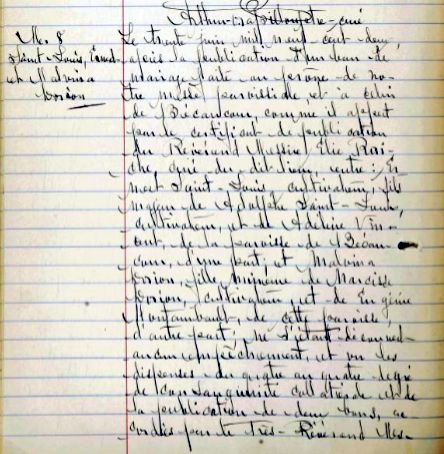 Arthur ptre-curé
M. 8
Saint-Louis, Ernest
et Malvina
Dorion
Le trente juin mil neuf cent deux,
après la publication d'un ban de
mariage faite au prône de no-
tre messe paroissiale, et à celui
de Bécancour, comme il appert
par le certificat de publication
du Révérend Messire Élie
curé du dit lieu, entre: Er-
nest Saint-Louis cultivateur, fils
mineur de Adolphe Saint-Louis,
cultivateur, et de Adeline Vin-
cent, de la paroisse de Bécan-
cour, d'une part; et Malvina
Dorion, fille mineure de Narcisse
Dorion, cultivateur, et de Eugénie
Montambault, de cette paroisse,
d'autre part; ne s'étant découvert
aucun empêchement, et vu les
dispenses du quatre au quatre degré
de consanguinité collatérale et de
la publication de deux bans, ac-
cordées par le Très-Révérend Mes-